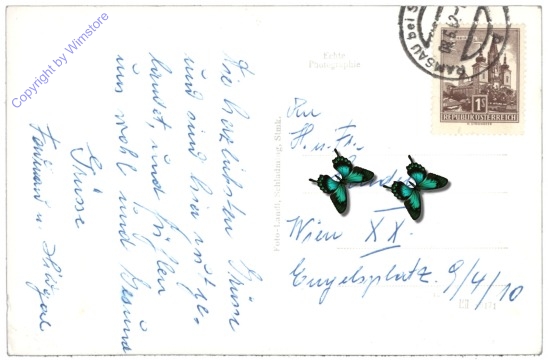 Copyright by Wimstore
Die herzlichsten Grüsse
und sind hier gut ge-
landet, und fühlen
uns wohl und Gesund
Grüsse
Ferdinand u. Hildegard
Echte
Photographie
Foto-Landt, Schladming, Stmk.
RAMSAU bei S
1S
REPUBLIK ÖSTERREICH
An
H. u. Fr.
Wien XX.
Engelsplatz 9/4/10